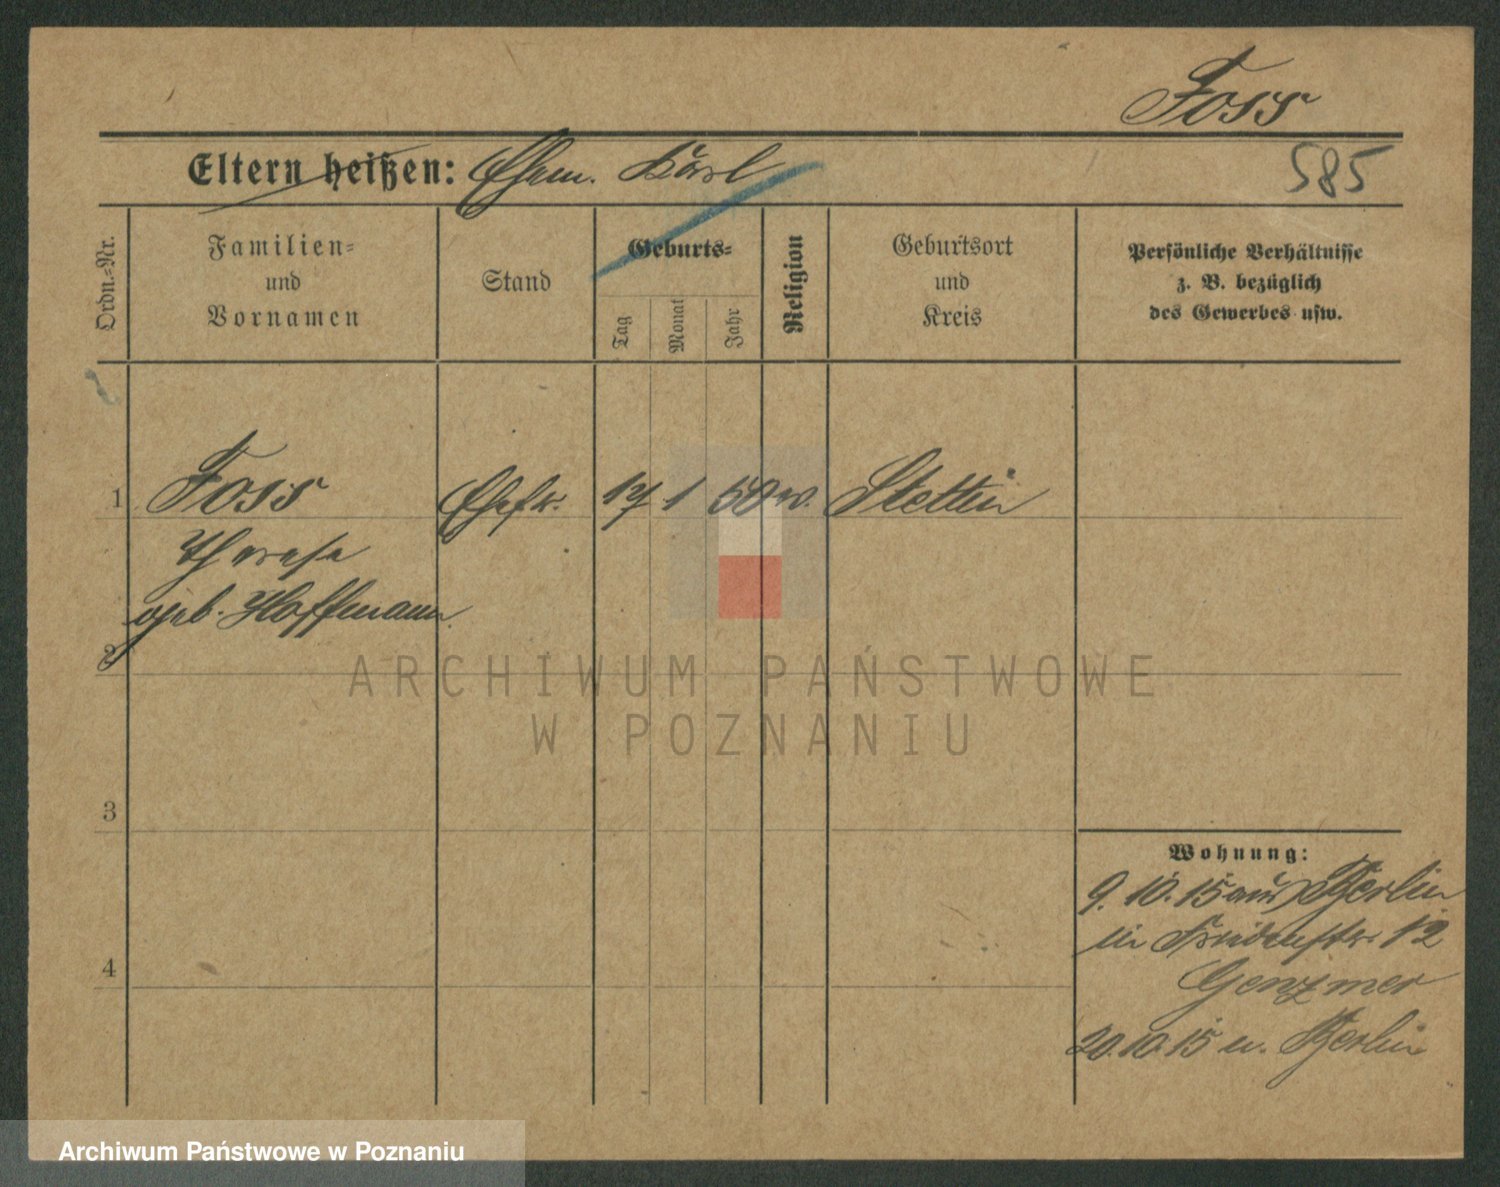 Foss
585
Eltern heißen: Ehem. Karl
Ordn.-Nr.
Familien-
und
Vornamen
Stand
Geburts-
Tag
Monat
Jahr
Religion
Geburtsort
und
Kreis
Persönliche Verhältnisse
z. B. bezüglich
des Gewerbes usw.
1 Foss Ehefr. 17 1 50 Stettin
Therese
geb. Hoffmann
2
3
4
Wohnung:
9.10.15 aus Berlin
in 12
Genzmer
20.10.15 n. Berlin
ARCHIWUM PAŃSTWOWE
W POZNANIU
Archiwum Państwowe w Poznaniu